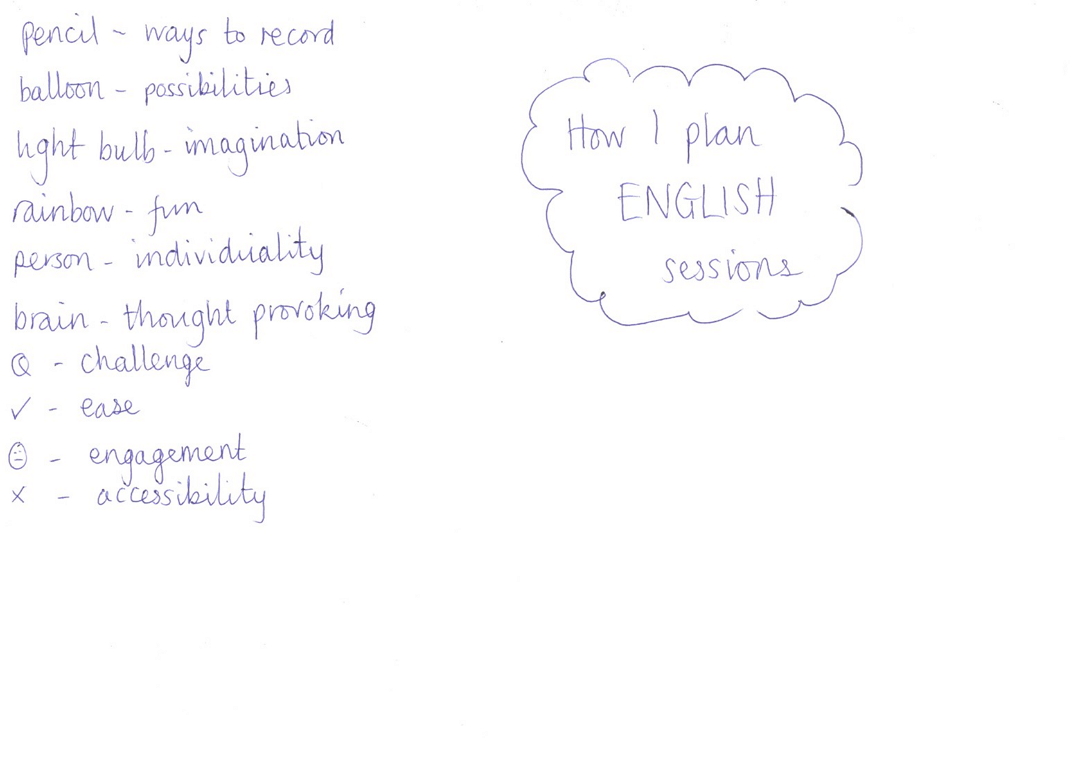 pencil ~ ways to record
balloon - possibilities
light bulb - imagination
rainbow - fun
person - individuality
brain - thought provoking
Q - challenge
✓ - ease
☺ - engagement
x - accessibility
How I plan
ENGLISH
sessions